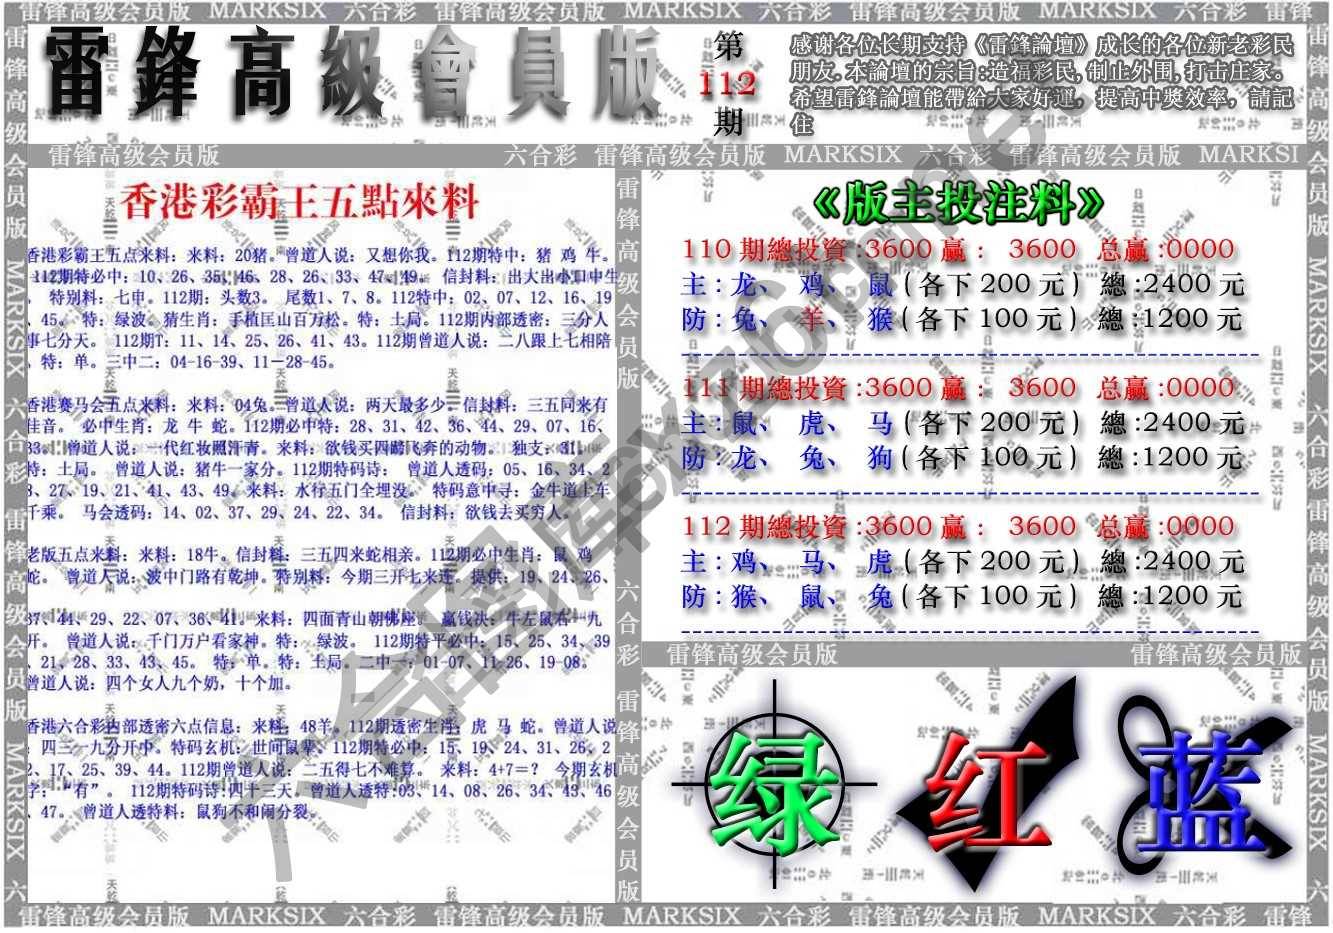 雷锋高级会员版 MARKSIX 六合彩 雷锋高级会员版 MARKSIX 六合彩 雷锋高级会员版 MARKSIX 六合彩 雷锋
雷鋒高級會員版
第
112
期
感谢各位长期支持《雷鋒論壇》成长的各位新老彩民
朋友.本論壇的宗旨:造福彩民,制止外围,打击庄家。
希望雷鋒論壇能帶給大家好運，提高中獎效率，請記
住
雷锋高级会员版 六合彩 雷锋高级会员版 MARKSIX 六合彩 雷锋高级会员版 MARKSI
香港彩霸王五點來料
香港彩霸王五点来料：来料：20猪。曾道人说：又想你我。112期特中：猪 鸡 牛。
112期特必中：10、26、35、46、28、26、33、47、49。 信封料：出大出小口中生
。 特别料：七申。112期：头数3。 尾数1、7、8。112特中：02、07、12、16、19
、45。 特：绿波。猪生肖：手植匡山百万松。特：土局。112期内部透密：三分人
事七分天。 112期T：11、14、25、26、41、43。112期曾道人说：二八跟上七相陪
。特：单。三中二：04-16-39、11-28-45。
香港赛马会五点来料：来料：04兔。曾道人说：两天最多少。信封料：三五同来有
佳音。 必中生肖：龙 牛 蛇。112期必中特：28、31、42、36、44、29、07、16、
33。 曾道人说：一代红妆照汗青。来料：欲钱买四蹄飞奔的动物。 独支：31。
特：土局。 曾道人说：猪牛一家分。112期特码诗： 曾道人透码：05、16、34、2
3、27、19、21、41、43、49。来料：水行五门全埋没。 特码意中寻：金牛道上车
千乘。 马会透码：14、02、37、29、24、22、34。 信封料：欲钱去买穷人。
老版五点来料：来料：18牛。信封料：三五四来蛇相亲。112期必中生肖：鼠 鸡
蛇。 曾道人说：波中门路有乾坤。特别料：今期三开七来连。提供：19、24、26、
37、44、29、22、07、36、41。来料：四面青山朝佛座。 赢钱决：牛左鼠右一九
开。 曾道人说：千门万户看家神。特： 绿波。 112期特平必中：15、25、34、39
、21、28、33、43、45。 特：单。特：土局。二中一：01-07、11-26、19-08。
曾道人说：四个女人九个奶，十个加。
香港六合彩内部透密六点信息：来料：48羊。112期透密生肖：虎 马 蛇。曾道人说
：四三一九分开中。特码玄机：世间鼠辈。112期特必中：15、19、24、31、26、2
2、17、25、39、44。112期曾道人说：二五得七不难算。 来料：4+7=？ 今期玄机
字：“有”。 112期特码诗:四十三天。曾道人透特:03、14、08、26、34、43、46
、47。 曾道人透特料：鼠狗不和闹分裂。
《版主投注料》
110 期總投資 :3600 赢： 3600 总赢 :0000
主 : 龙、 鸡、 鼠 ( 各下 200 元 ) 總 :2400 元
防 : 兔、 羊、 猴 ( 各下 100 元 ) 總 :1200 元
111 期總投資 :3600 赢： 3600 总赢 :0000
主 : 鼠、 虎、 马 ( 各下 200 元 ) 總 :2400 元
防 : 龙、 兔、 狗 ( 各下 100 元 ) 總 :1200 元
112 期總投資 :3600 赢： 3600 总赢 :0000
主 : 鸡、 马、 虎 ( 各下 200 元 ) 總 :2400 元
防 : 猴、 鼠、 兔 ( 各下 100 元 ) 總 :1200 元
雷锋高级会员版 雷锋高级会员版
绿 红 蓝
雷锋高级会员版 MARKSIX 六合彩 雷锋高级会员版 MARKSIX 六合彩 雷锋高级会员版 MARKSIX 六合彩 雷锋
雷锋高级会员版 MARKSIX 六合彩 雷锋高级会员版 MARKSIX 六
雷锋高级会员版 六合彩 雷锋高级会员版